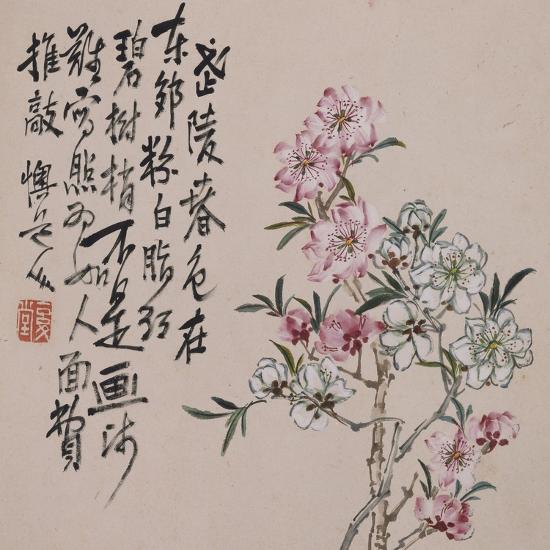 武陵春色在
东郊粉白脂红
碧树梢不是画师
难写照为如人面费
推敲